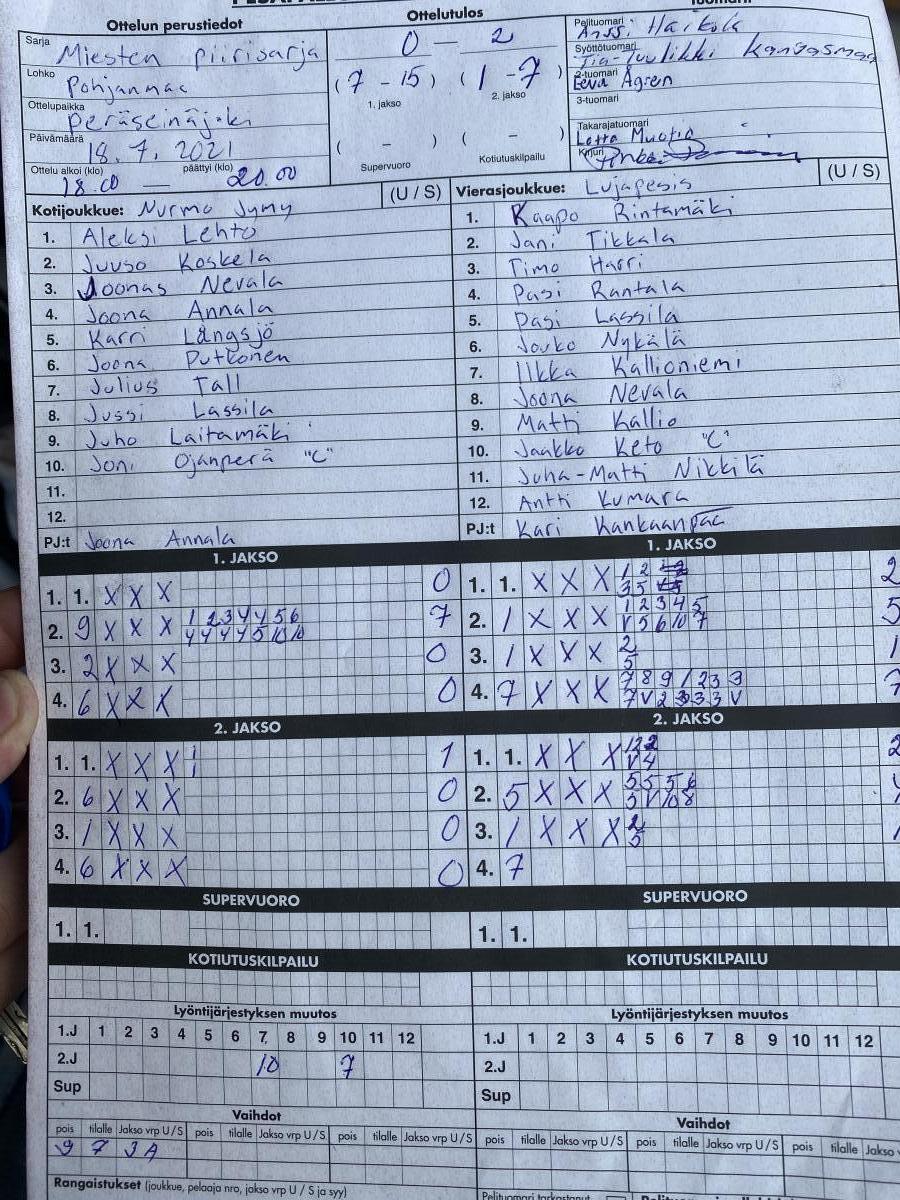 Ottelun perustiedot
Sarja Miesten piirisarja
Lohko Pohjanmaa
Ottelupaikka Peräseinäjoki
Päivämäärä 18.7.2021
Ottelu alkoi (klo) päättyi (klo)
18.00 — 20.00
Ottelutulos
0 — 2
(7 - 15) (1 - 7)
1. jakso 2. jakso
( - ) ( - )
Supervuoro Kotiutuskilpailu
Pelituomari Anssi Harkola
Syöttötuomari Tia-Tuulikki Kangasmaa
2-tuomari Eeva Ågren
3-tuomari
Takarajatuomari
Lotta Muotio
Kirjuri
Kotijoukkue: Nurmo Jymy (U / S)
1. Aleksi Lehto
2. Juuso Koskela
3. Joonas Nevala
4. Joona Annala
5. Karri Långsjö
6. Joona Putkonen
7. Julius Tall
8. Jussi Lassila
9. Juho Laitamäki
10. Joni Ojanperä "C"
11.
12.
PJ:t Joona Annala
Vierasjoukkue: Lujapesis (U / S)
1. Kaapo Rintamäki
2. Jani Tikkala
3. Timo Harri
4. Pasi Rantala
5. Pasi Lassila
6. Jouko Nykälä
7. Ilkka Kallioniemi
8. Joona Nevala
9. Matti Kallio
10. Jaakko Keto "C"
11. Juha-Matti Nikkilä
12. Antti Kumara
PJ:t Kari Kankaanpää
1. JAKSO
1. 1. X X X 0
2. 9 X X X 1 2 3 4 4 5 6 7
4 4 4 4 5 10 10
3. 2 X X X 0
4. 6 X X X 0
2. JAKSO
1. 1. X X X 1
2. 6 X X X 0
3. 1 X X X 0
4. 6 X X X 0
SUPERVUORO
1. 1.
KOTIUTUSKILPAILU
Lyöntijärjestyksen muutos
1.J 1 2 3 4 5 6 7 8 9 10 11 12
2.J 10 7
Sup
Vaihdot
pois tilalle Jakso vrp U / S pois tilalle Jakso vrp U / S pois tilalle Jakso vrp U / S
9 7 3A
Rangaistukset (joukkue, pelaaja nro, jakso vrp U / S ja syy)
1. JAKSO
1. 1. X X X 1 2 2
3 5
2. 1 X X X 1 2 3 4 5 5
V 5 6 10 7
3. 1 X X X 2 1
5
4. 7 X X X 7 8 9 1 2 3 3 7
7 V 2 3 3 3 V
2. JAKSO
1. 1. X X X 2
V 4
2. 5 X X X 5 5 5 6
3 V 10 8
3. 1 X X X 2
5
4. 7
SUPERVUORO
1. 1.
KOTIUTUSKILPAILU
Lyöntijärjestyksen muutos
1.J 1 2 3 4 5 6 7 8 9 10 11 12
2.J
Sup
Vaihdot
pois tilalle Jakso vrp U / S pois tilalle Jakso vrp U / S pois tilalle Jakso